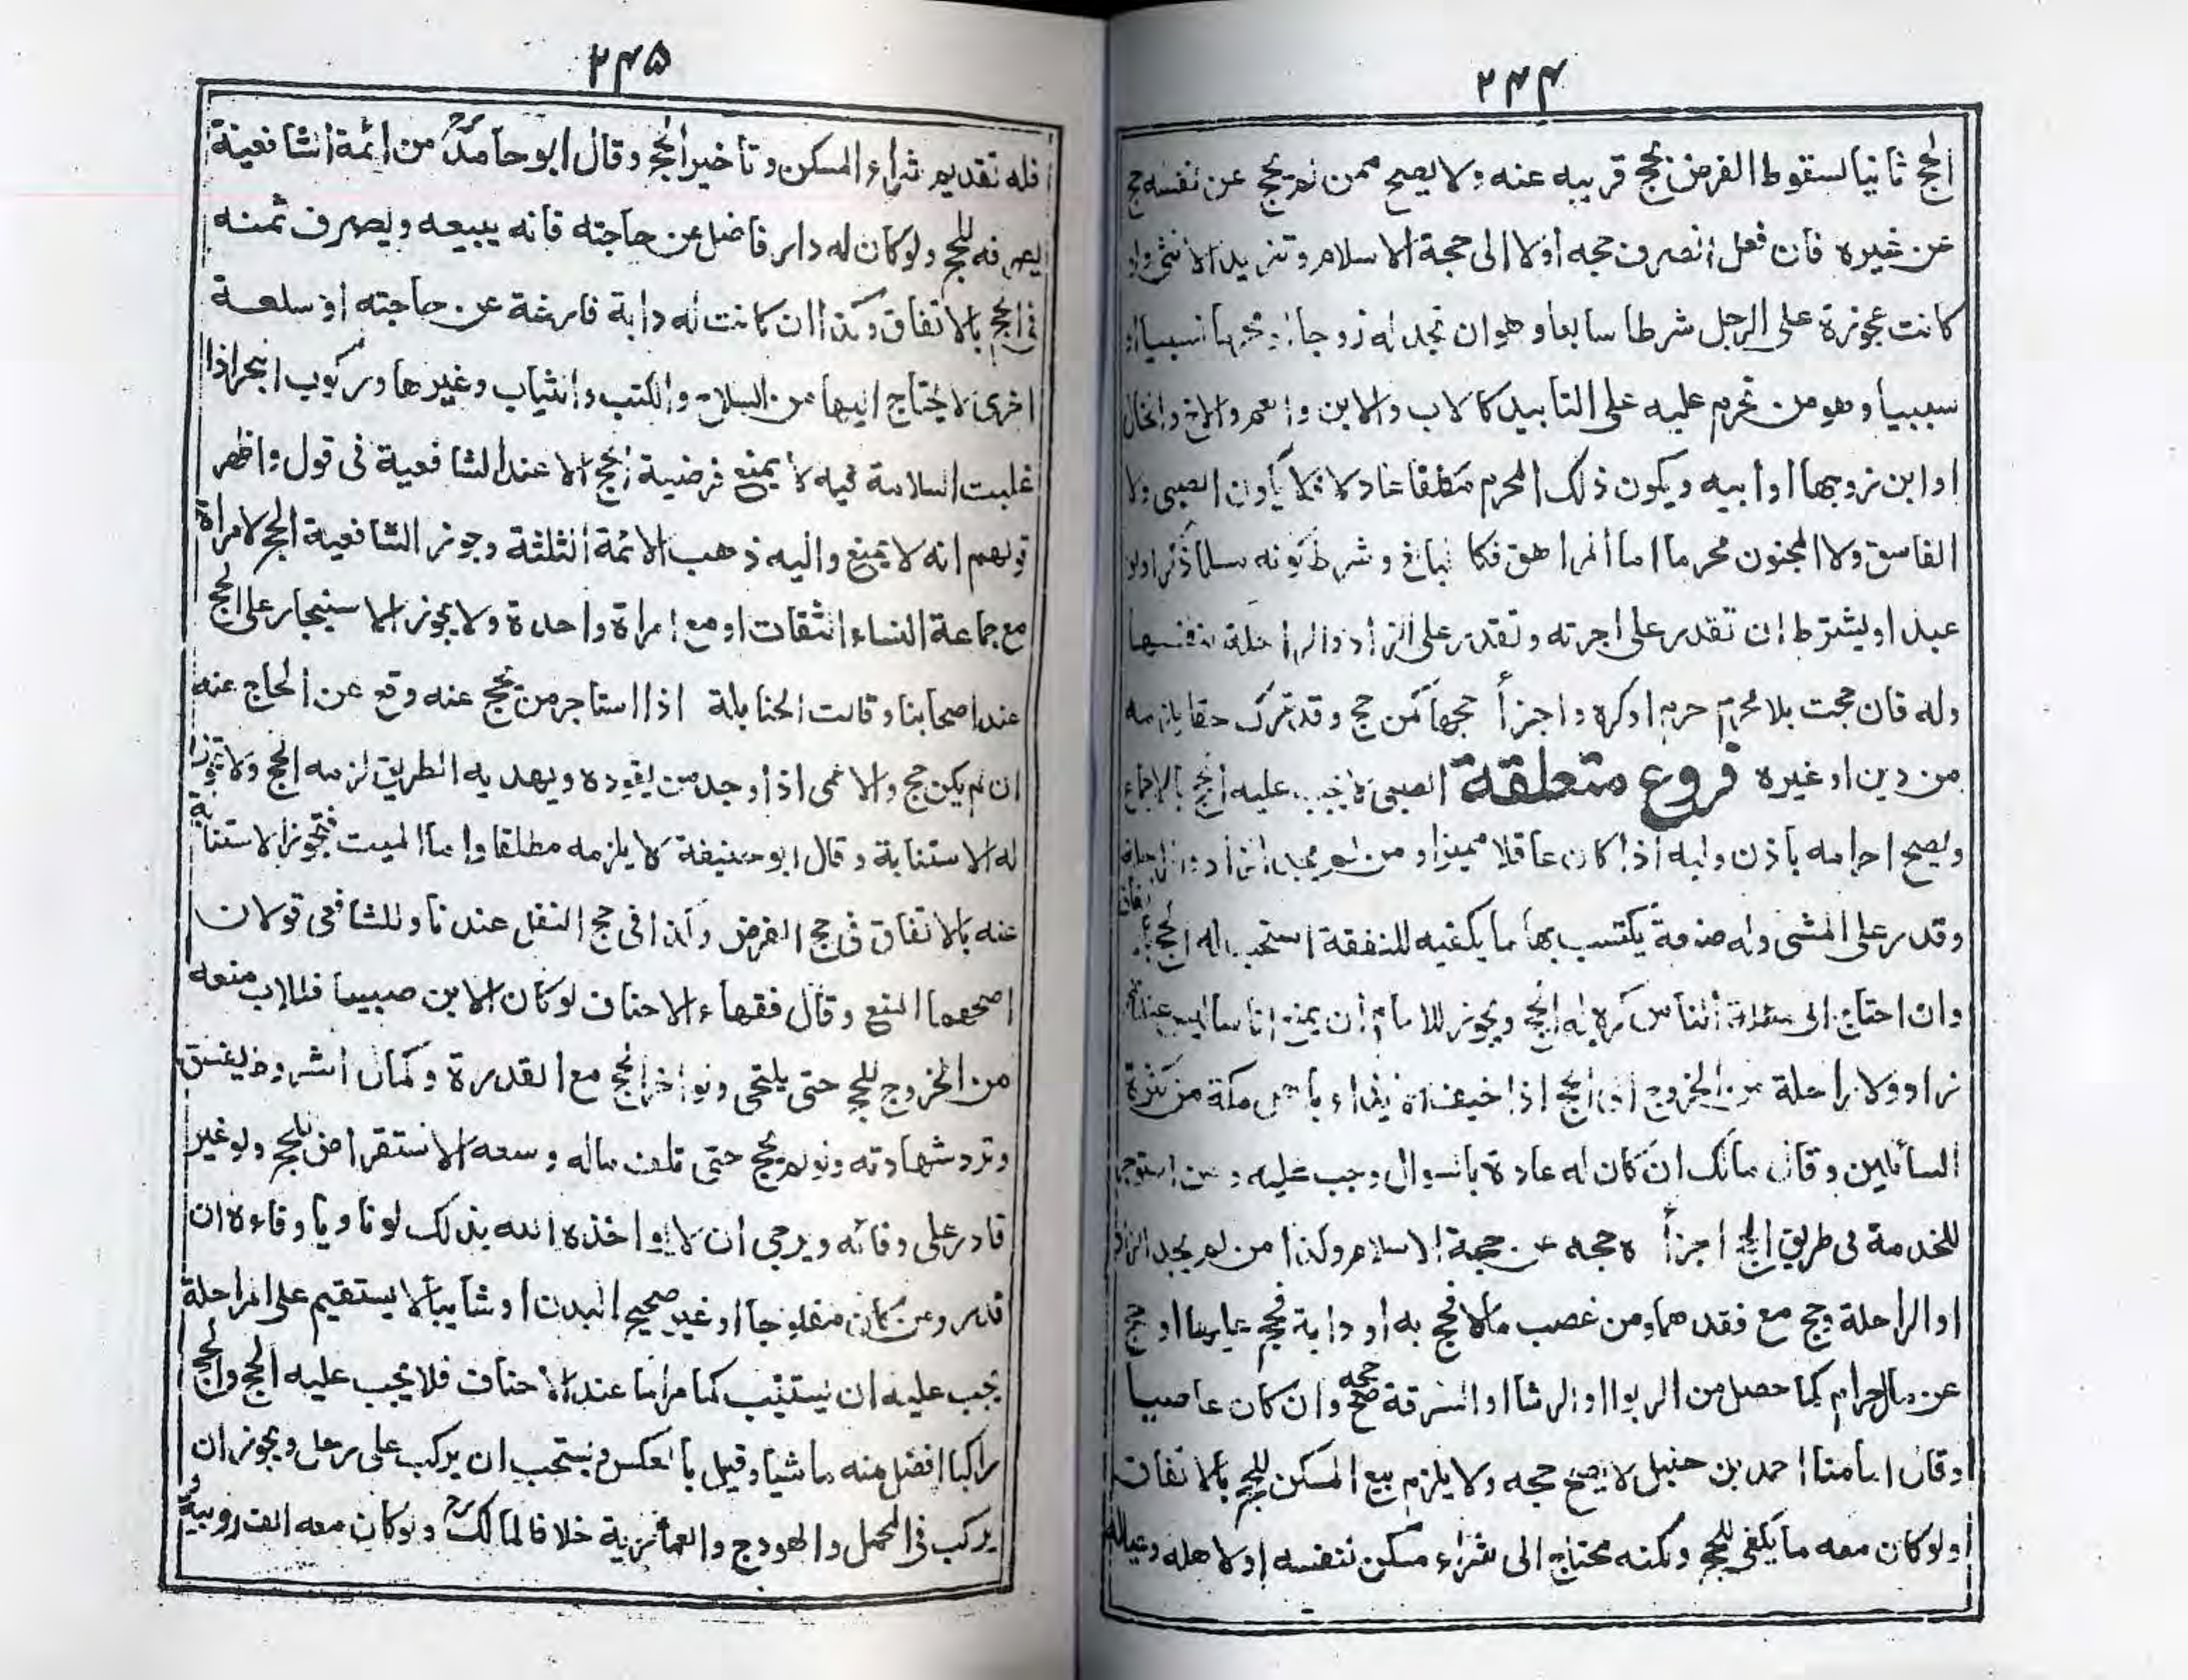 ٢٤٤
الحج ثانيا لسقوط الفرض بحج قريبه عنه ولا يصح ممن لم يحج عن نفسه حج
عن غيره فان فعل انصرف حجه اولا الى حجة الاسلام وتزيد الانثى ولو
كانت عجوزة على الرجل شرطا سابعا وهو ان تجد له زوجا او محرما نسبيا او
سببيا وهو من تحرم عليه على التابيد كالاب والابن والعم والاخ والخال
او ابن زوجها او ابيه ويكون ذلك المحرم مكلفا عادلا فلا يكون الصبى ولا
الفاسق ولا المجنون محرما اما المراهق فكالبالغ وشرط كونه مسلما ذكرا ولو
عبدا ويشترط ان تقدر على اجرته وتقدر على الزاد والراحلة لنفسها
وله فان حجت بلا محرم حرم او كره واجزأ حجها كمن حج وقد ترك حقا يلزمه
من دين او غيره فروع متعلقة الصبى لا يجب عليه الحج بالاجماع
ويصح احرامه باذن وليه اذا كان عاقلا مميزا ومن لم يجد الزاد والراحلة
وقدر على المشى وله صنعة يكتسب بها ما يكفيه للنفقة استحب له الحج بالاتفاق
وان احتاج الى مسئلة الناس كره له الحج ويجوز للامام ان يمنع اناسا ليس عندهم
زاد ولا راحلة من الخروج الى الحج اذا خيف ايذاء باهل مكة من كثرة
السائلين وقال مالك ان كان له عادة بالسوال وجب عليه ومن استوجر
للخدمة فى طريق الحج اجزأه حجه عن حجة الاسلام وكذا من لم يجد الزاد
او الراحلة وحج مع فقدهما ومن غصب مالا فحج به او دابة فحج عليها او حج
عن مال حرام كما حصل من الربوا او الرشا او السرقة صح حجه وان كان عاصيا
وقال امامنا احمد بن حنبل لا يصح حجه ولا يلزم بيع المسكن للحج بالاتفاق
ولو كان معه ما يكفى للحج ولكنه محتاج الى شراء مسكن لنفسه او لاهله وعياله
٢٤٥
فله تقديم شراء المسكن وتأخير الحج وقال ابو حامدؒ من ائمة الشافعية
يصرفه للحج ولو كان له دار فاضل عن حاجته فانه يبيعه ويصرف ثمنه
فى الحج بالاتفاق وكذا ان كانت له دابة فارغة عن حاجته او سلعة
اخرى لا يحتاج اليها من السلاح والكتب والثياب وغيرها وركوب البحر اذا
غلبت السلامة فيه لا يمنع فرضية الحج الا عند الشافعية فى قول واظهر
قوليهم انه لا يمنع واليه ذهب الائمة الثلثة وجوز الشافعية الحج لامراة
مع جماعة النساء الثقات او مع امراة واحدة ولا يجوز الاستيجار على الحج
عند اصحابنا وقالت الحنابلة اذا استاجر من يحج عنه وقع عن الحاج عنه
ان لم يكن حج والاعمى اذا وجد من يقوده ويهديه الطريق لزمه الحج ولا تجوز
له الاستنابة وقال ابو حنيفة لا يلزمه مطلقا واما الميت فتجوز الاستنابة
عنه بالاتفاق فى حج الفرض وكذا فى حج النفل عندنا وللشافعى قولان
اصحهما المنع وقال فقهاء الاحناف لو كان الابن صبيبا فللاب منعه
من الخروج للحج حتى يلتحى ولو اخر الحج مع القدرة وكمال الشروط يفسق
وترد شهادته ولو لم يحج حتى تلف ماله وسعه الاستقراض للحج ولو غير
قادر على وفائه ويرجى ان لا يواخذه الله بذلك لو ناويا وفاءه ان
قدر ومن كان مفلوجا او غير صحيح البدن او شايبا لا يستقيم على الراحلة
يجب عليه ان يستنيب كما مر اما عند الاحناف فلا يجب عليه الحج والحج
راكبا افضل منه ماشيا وقيل بالعكس ويستحب ان يركب على رحل ويجوز ان
يركب فى المحمل والهودج والعمارية خلافا لمالكؒ ولو كان معه الف روبية